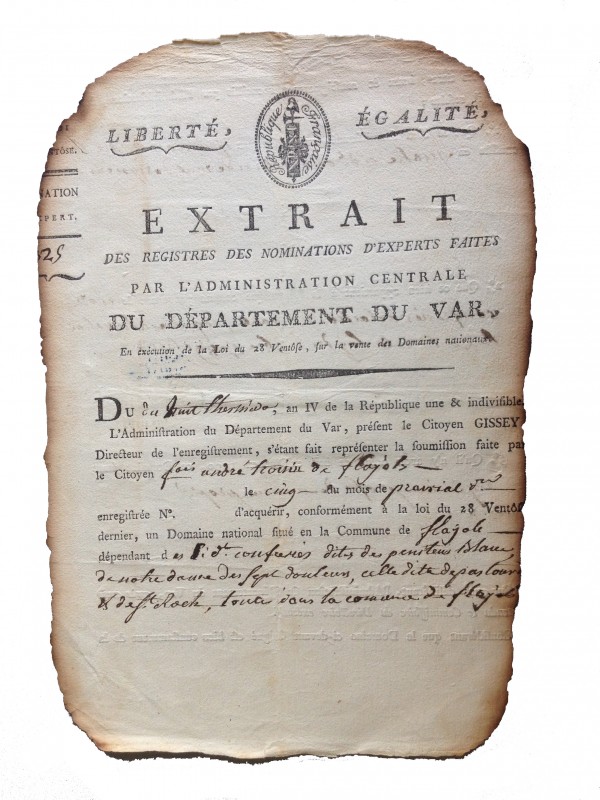 LIBERTÉ,
République Française
ÉGALITÉ,
TÔSE.
NATION
PERT.
325
EXTRAIT
DES REGISTRES DES NOMINATIONS D'EXPERTS FAITES
PAR L'ADMINISTRATION CENTRALE
DU DÉPARTEMENT DU VAR,
En exécution de la Loi du 28 Ventôse, sur la vente des Domaines nationaux
DU du huit thermidor, an IV de la République une & indivisible.
L'Administration du Département du Var, présent le Citoyen GISSEY
Directeur de l'enregistrement, s'étant fait représenter la soumission faite pa
le Citoyen fois andré de flayols
le cinq du mois de prairial
enregistrée N°. d'acquérir, conformément à la loi du 28 Ventôs
dernier, un Domaine national situé en la Commune de flayols
dépendant des confreries dites des peniteus Blanc,
de notre dame des Sept douleurs, celle dite de pastour
& de St. Roch, toute dans la commune de flayols